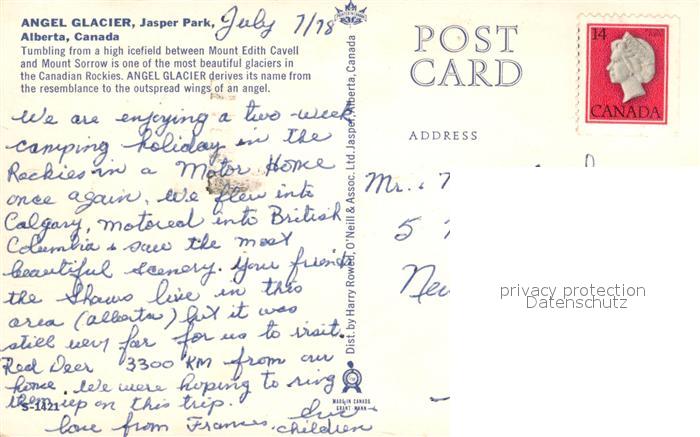 ANGEL GLACIER, Jasper Park, July 7/78
Alberta, Canada
Tumbling from a high icefield between Mount Edith Cavell
and Mount Sorrow is one of the most beautiful glaciers in
the Canadian Rockies. ANGEL GLACIER derives its name from
the resemblance to the outspread wings of an angel.
We are enjoying a two-week
camping holiday in the
Rockies in a Motor Home
once again. We flew into
Calgary, motored into British
Columbia & saw the most
beautiful scenery. Your friends
the Shaws live in this
area (alberta) but it was
still very far for us to visit.
Red Deer 3300 KM from our
home. We were hoping to ring
them up on this trip.
S-1421
love from Frances,
children
Dist. by Harry Rowed, O'Neill & Assoc. Ltd. Jasper, Alberta, Canada
MADE IN CANADA
GRANT-MANN
POST
CARD
ADDRESS
14
CANADA
Mr.
5
New
privacy protection
Datenschutz